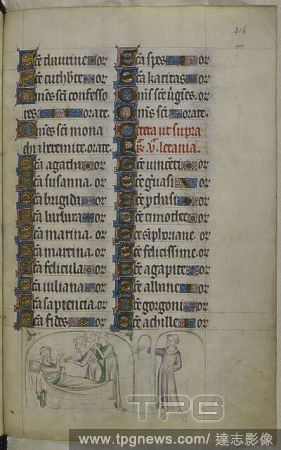 316
Sce taurine or
Sce cuthbte or
Omes sci confesso
res orate
Omes sci mona
chi ⁊ heremite orate
Sca agatha or
Sca susanna or
Sca brigida or
Sca barbara or
Sca marina or
Sca martina or
Sca felicula or
Sca iuliana or
Sca sapiencia or
Sca fides or
Sca spes or
Sca karitas or
Omis sce ugines or
Omis sci orate
Cetera ut supra
letania
Sce uincenti or
Sce geruasi or
Sce pthasi or
Sce timothee or
Sce simphoriane or
Sce felicissime or
Sce agapite or
Sce albane or
Sce gorgoni or
Sce achillee or
TPG
www.tpgnews.com/ 達志影像